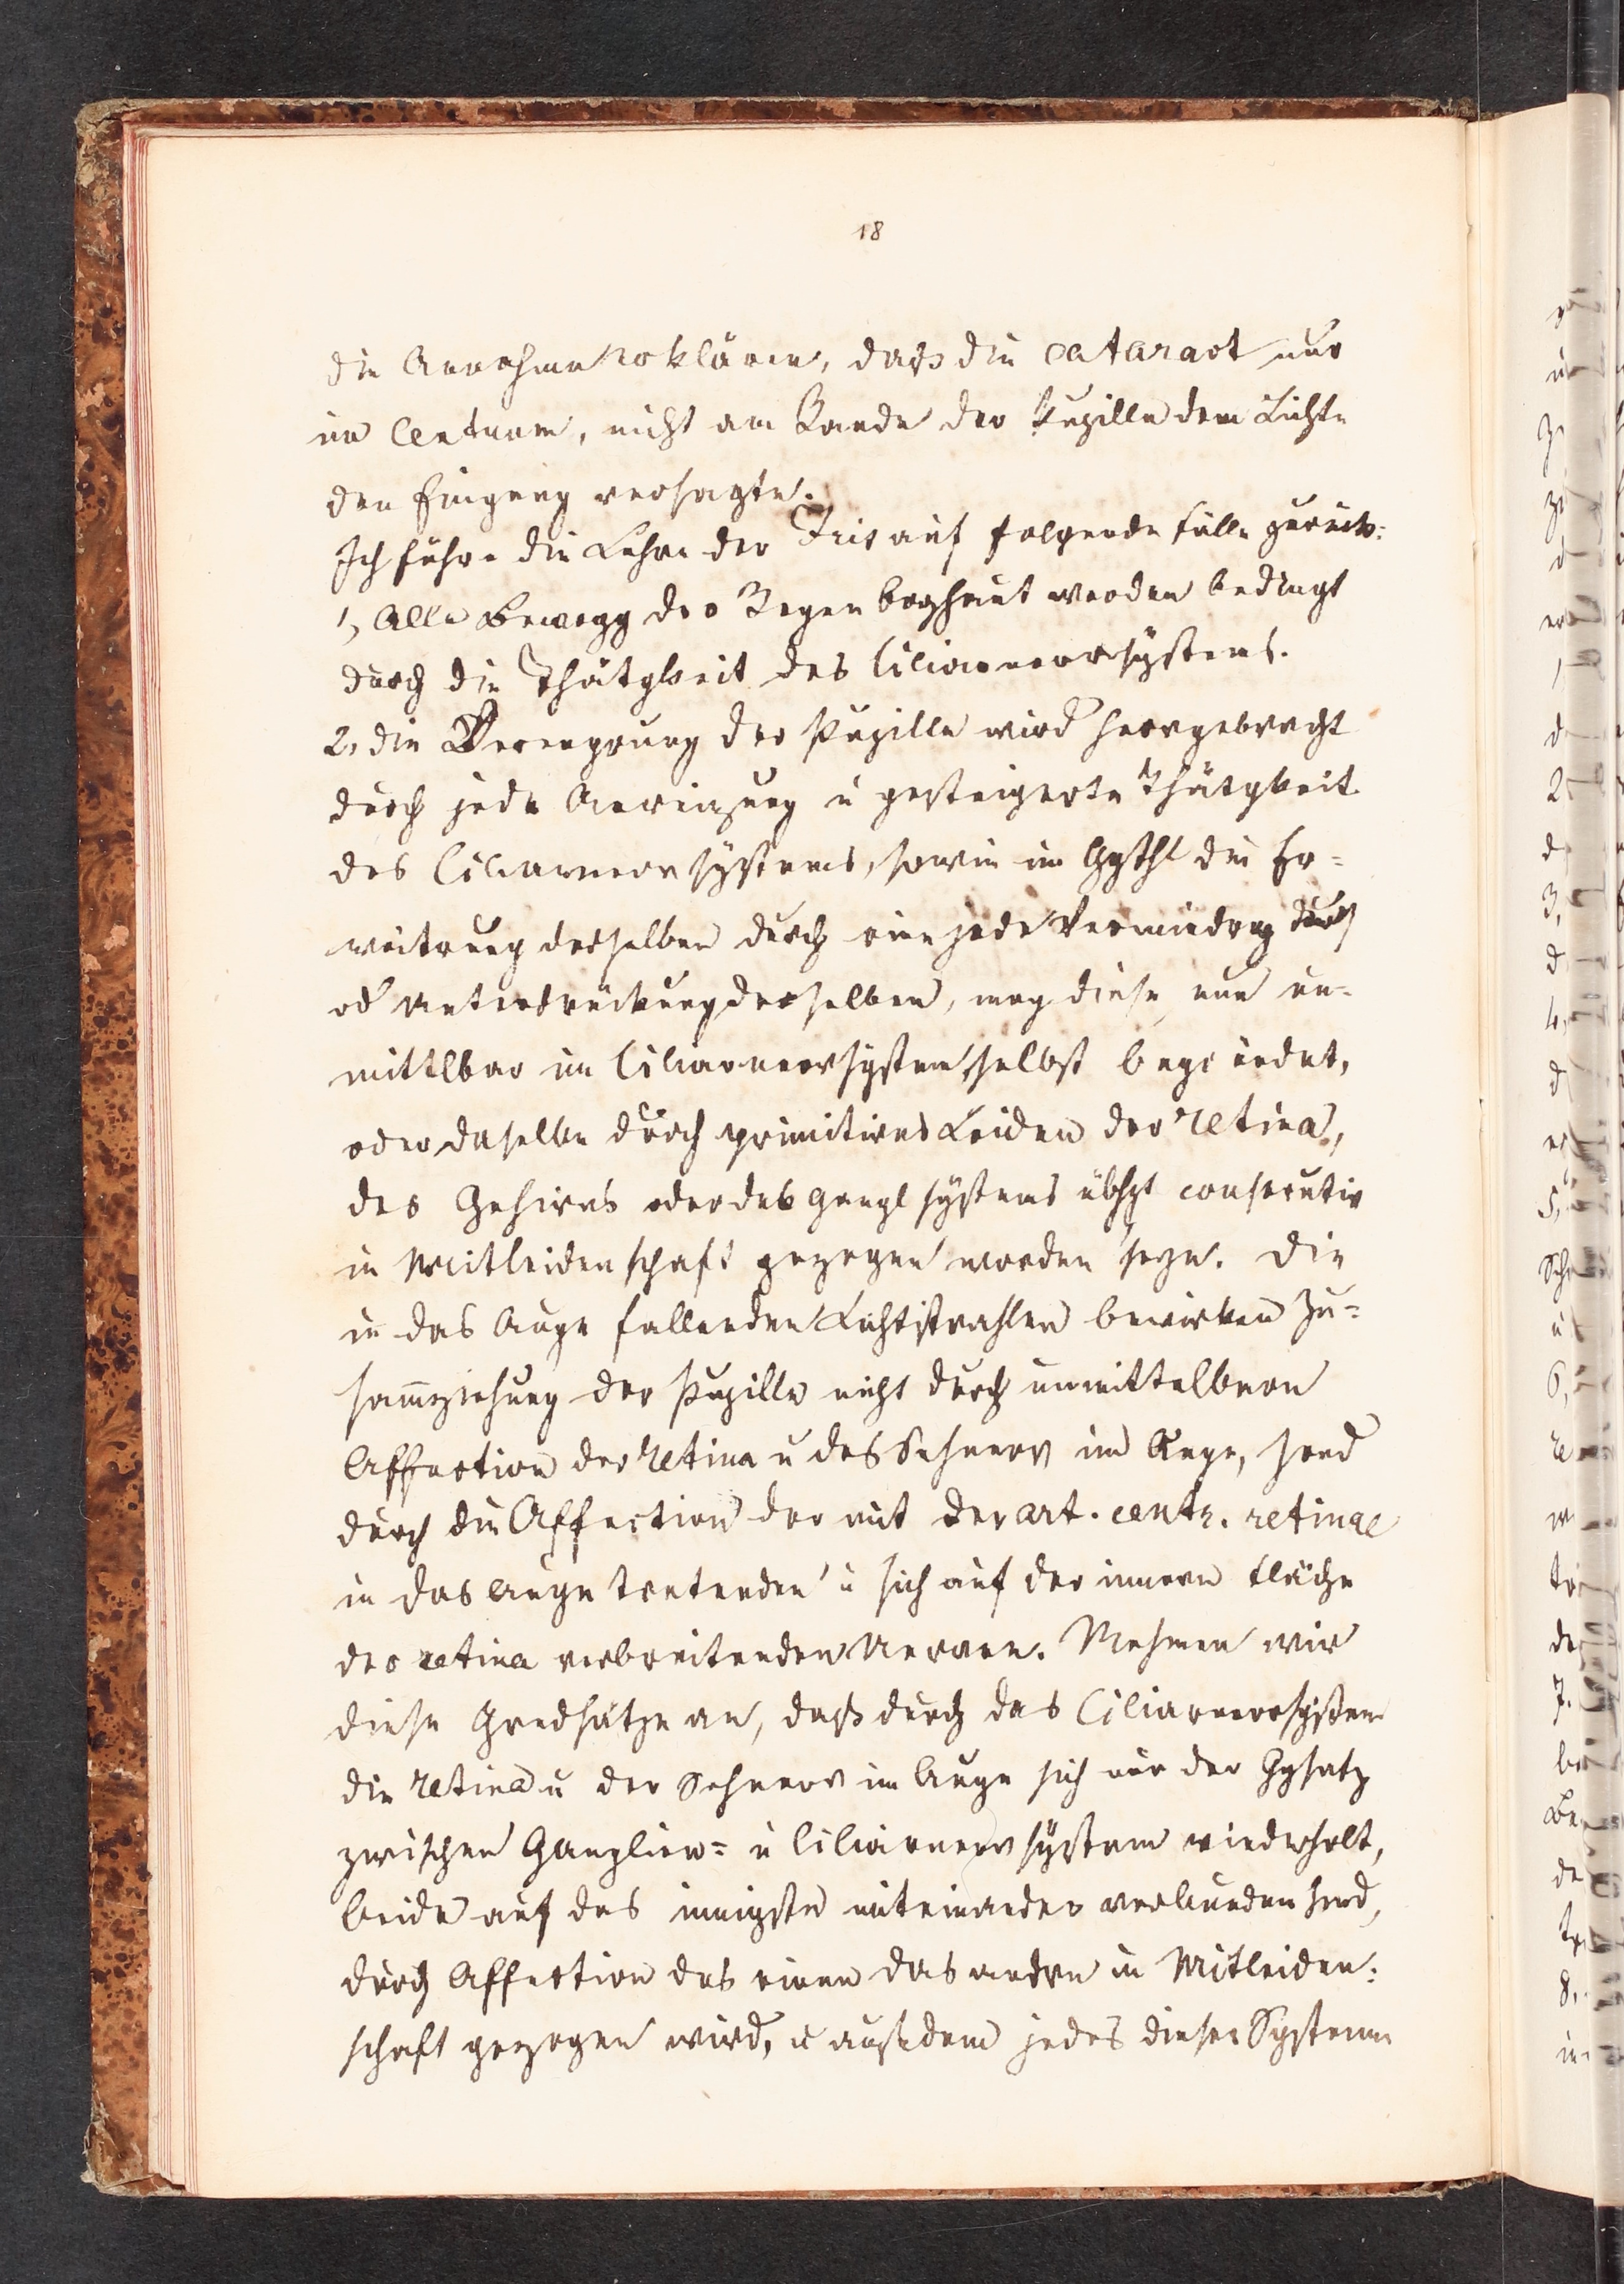 18
die Annahme erklären, daß die cataract nur
im Centrum, nicht am Rande der Pupille dem Lichte
den Eingang versagte.
Ich führe die Lehre der Iris auf folgende Fälle zurück:
1, Alle Bewegg der Regenboghaut werden bedingt
durch die Thätgkeit des Ciliarnervsÿstems.
2, die Verengrung der Pupille wird hervgebracht
durch jede Anreizung u gesteigerte Thätgkeit
des Ciliarnervsÿstems, sowie im Ggthl die Er=
weitrung derselben durch eine jede Vermindrg durch
od Unterdrückung desselben, mag diese nun un-
mittlbar im Ciliarnervsystem selbst begründet,
oder daselbe durch primitives Leiden der retina,
des Gehirns oder des Ganglsÿstems übhpt consecutiv
in Mitleidenschaft gezogen worden seyn. Die
in das Auge fallenden Lichtstrahlen bewirken Zu=
sam̅ziehung der Pupille nicht durch unmittelbare
Affection der retina u des Sehnerv im Auge, sond
durch die Affection der mit der art. centr. retinae
in das Auge tretenden u sich auf der innern Fläche
der retina verbreitenden Nerven. Nehmen wir
diese Grndsätze an, daß durch das Ciliarnervsystem
die retina u der Sehnerv im Auge sich nur der Ggsatz
zwischen Ganglien= u Ciliarnervsÿstem wiederholt,
beide auf das innigste miteinander verbunden sind,
durch Affection des einen das andre in Mitleiden=
schaft gezogen wird, u außdem jedes dieser Systeme